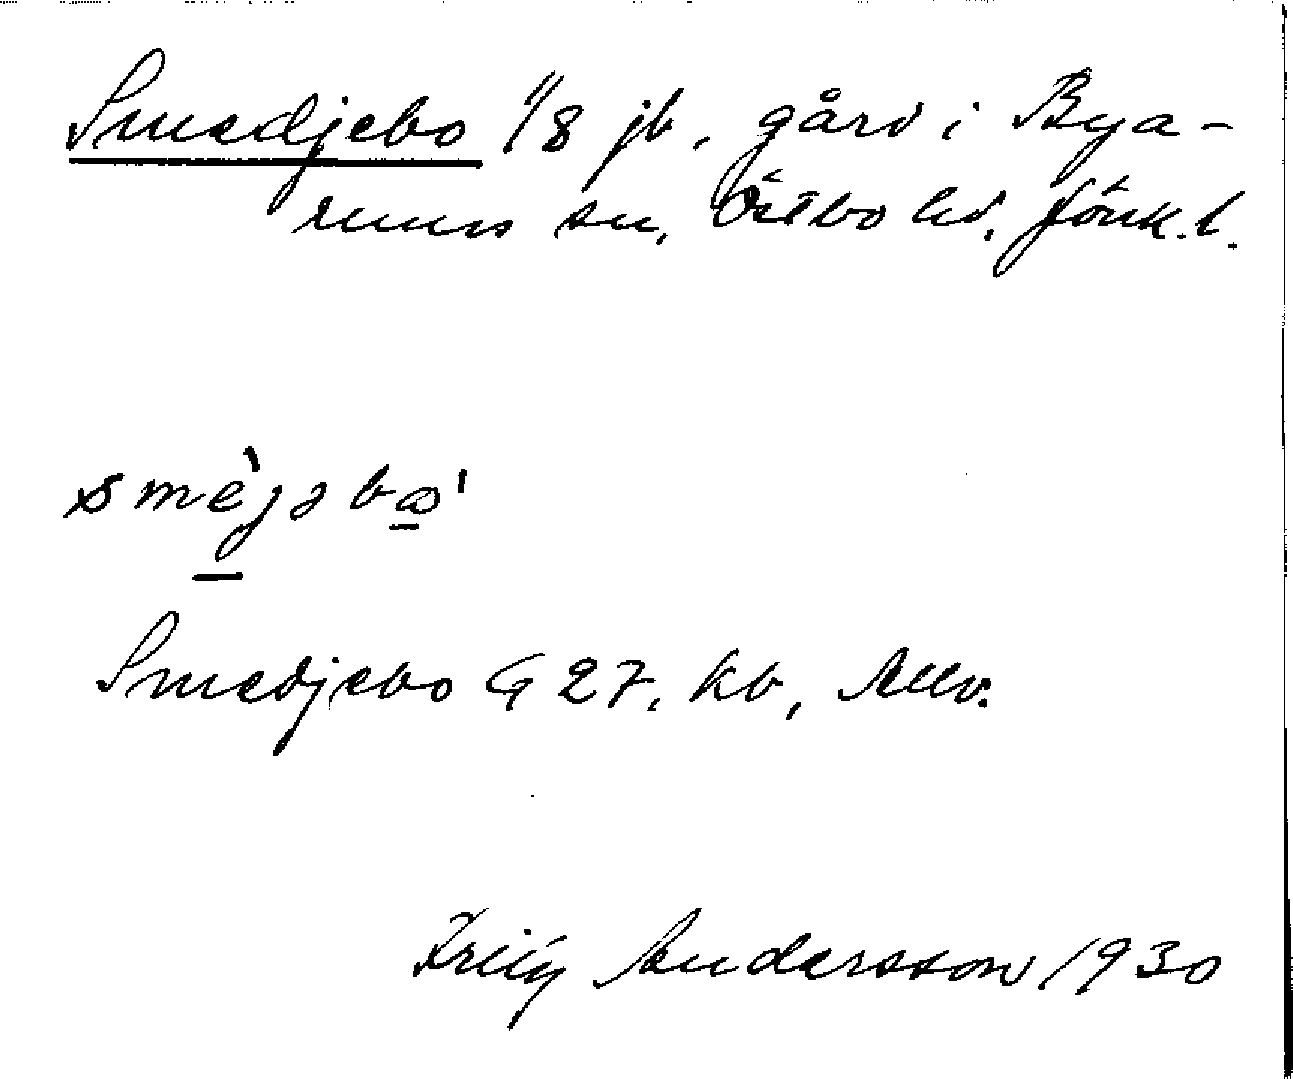 Smedjebo 1/8 jb, gård i Bya-
rums sn, Östbo hd, Jönk. l.
smèjəbω'
Smedjebo G 27. kb, Allv.
Andersson 1930